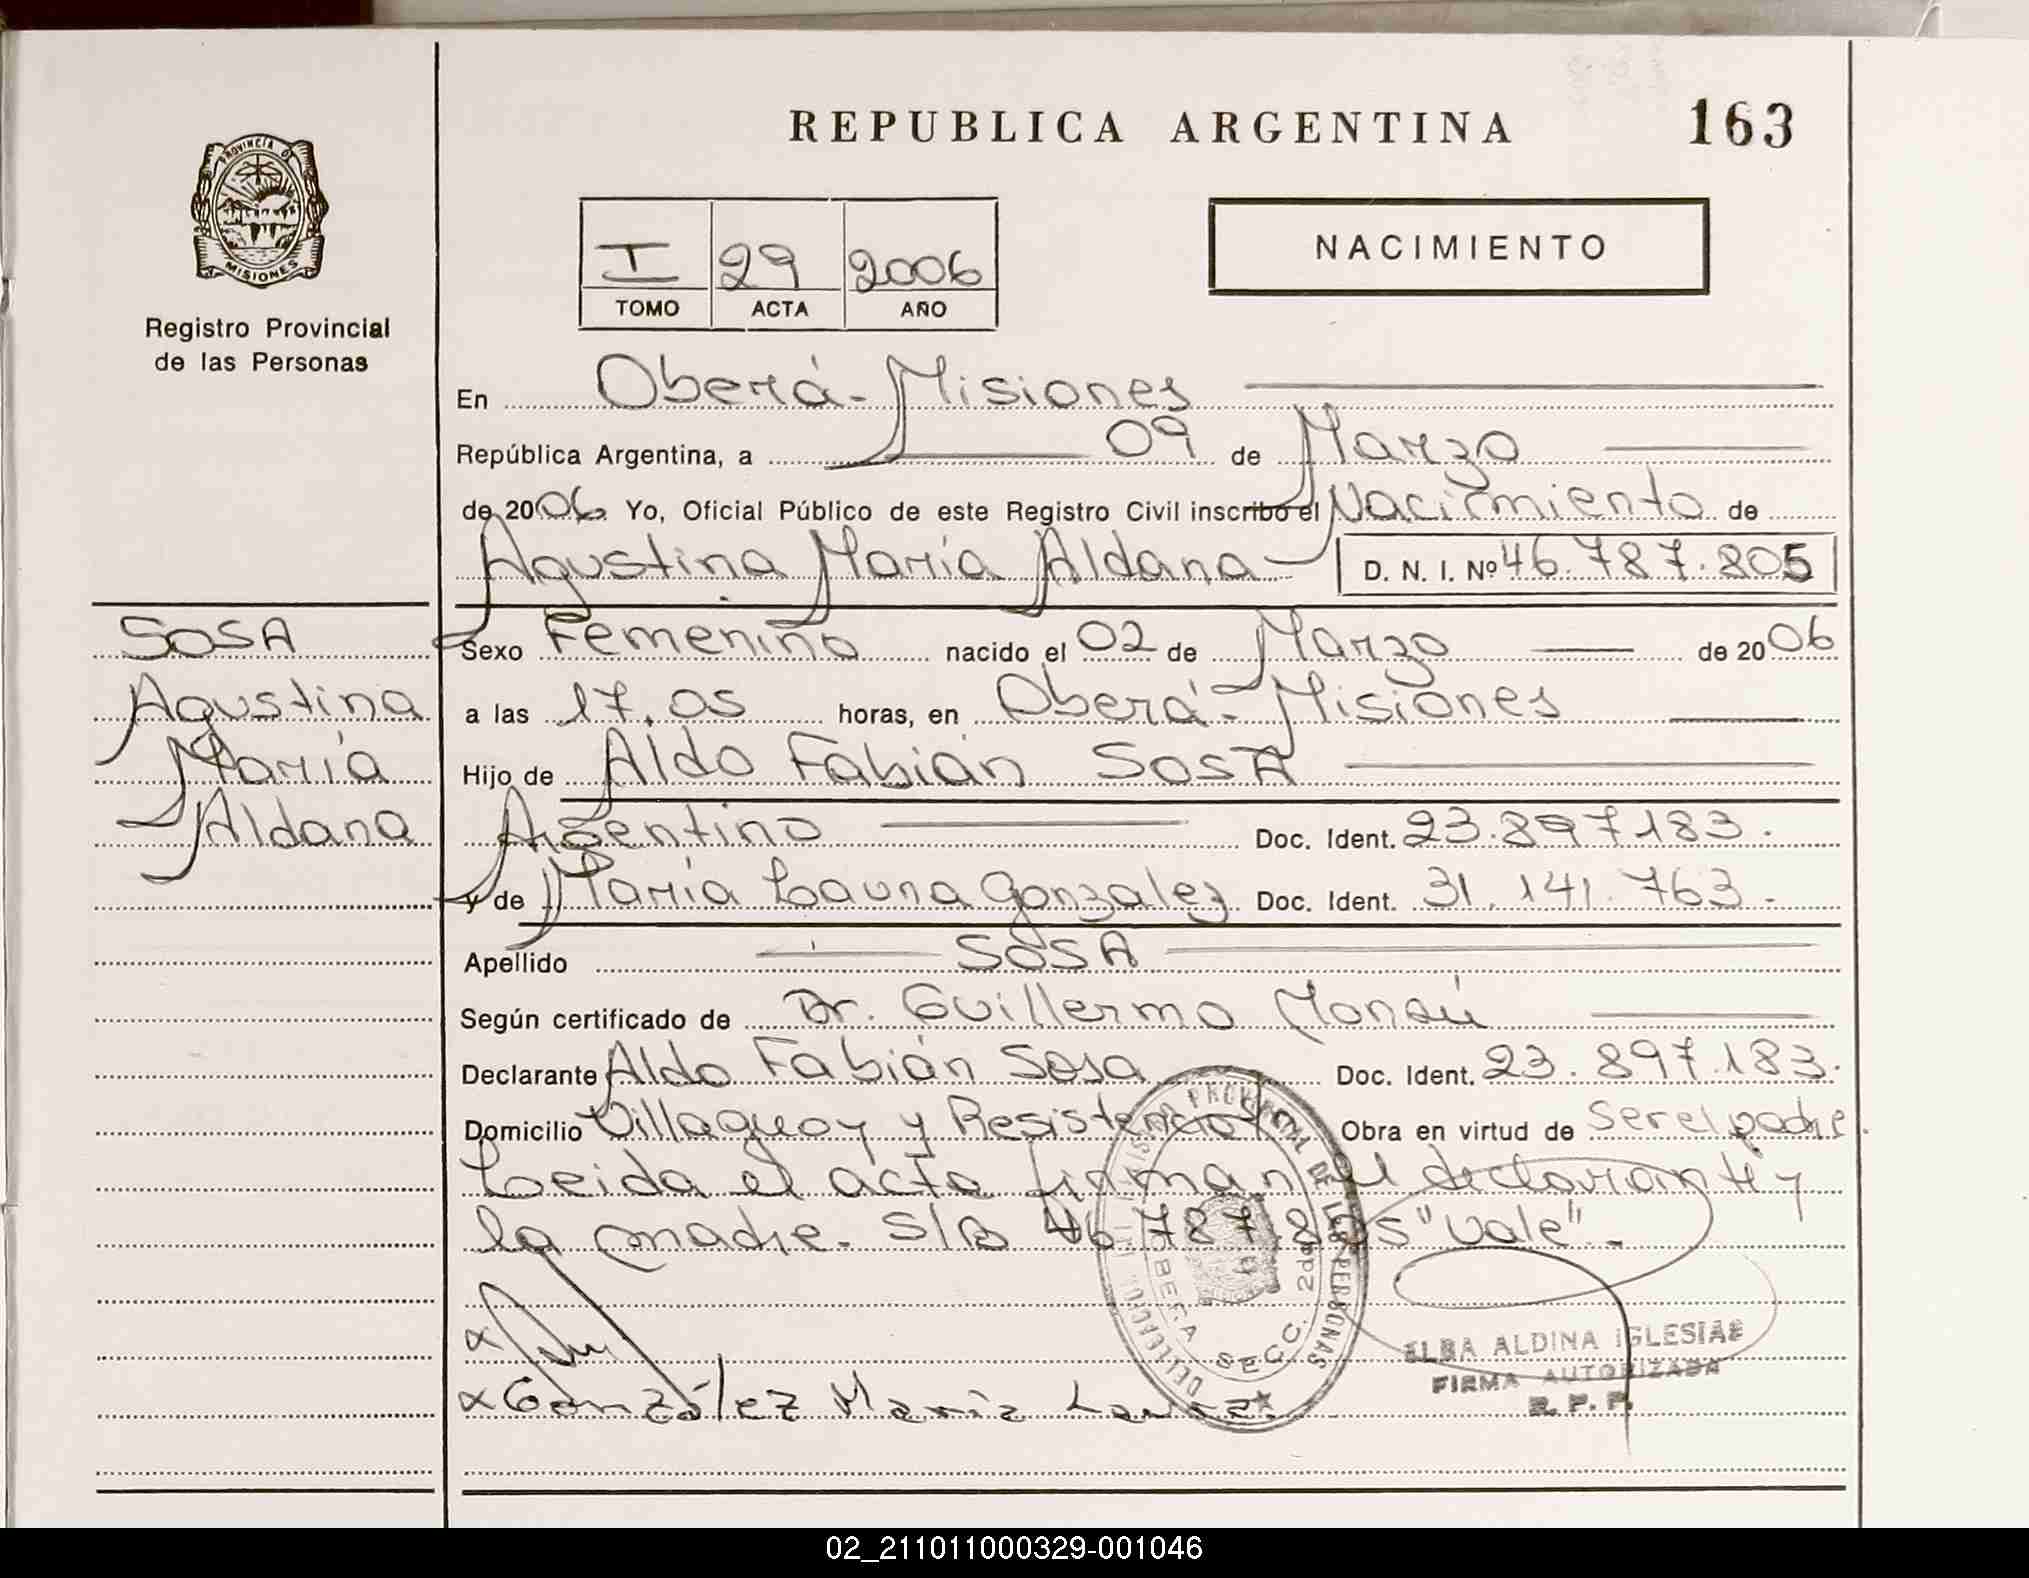 REPUBLICA ARGENTINA
163
PROVINCIA DE
MISIONES
Registro Provincial
de las Personas
I 29 2006
TOMO ACTA AÑO
NACIMIENTO
En Oberá - Misiones
República Argentina, a 09 de Marzo
de 2006 Yo, Oficial Público de este Registro Civil inscribo el Nacimiento de
Agustina María Aldana - D. N. I. Nº 46.787.805
SOSA
Agustina
María
Aldana
Sexo Femenino nacido el 02 de Marzo de 2006
a las 17,05 horas, en Oberá - Misiones
Hijo de Aldo Fabián SOSA
Argentino Doc. Ident. 23.897.183.
y de María Laura Gonzalez Doc. Ident. 31.141.763.
Apellido SOSA
Según certificado de Dr. Guillermo
Declarante Aldo Fabián Sosa Doc. Ident. 23.897.183.
Domicilio Villaguay y Resistencia S/n Obra en virtud de ser el padre.
Leida el acta firman el declarante y
la madre. S/B 46.787.805 "Vale".
PROVINCIAL DE LAS PERSONAS
OBERA SECC. 2da
x
x González María Laura.
ELBA ALDINA IGLESIAS
FIRMA AUTORIZADA
R. P. P.
02_211011000329-001046